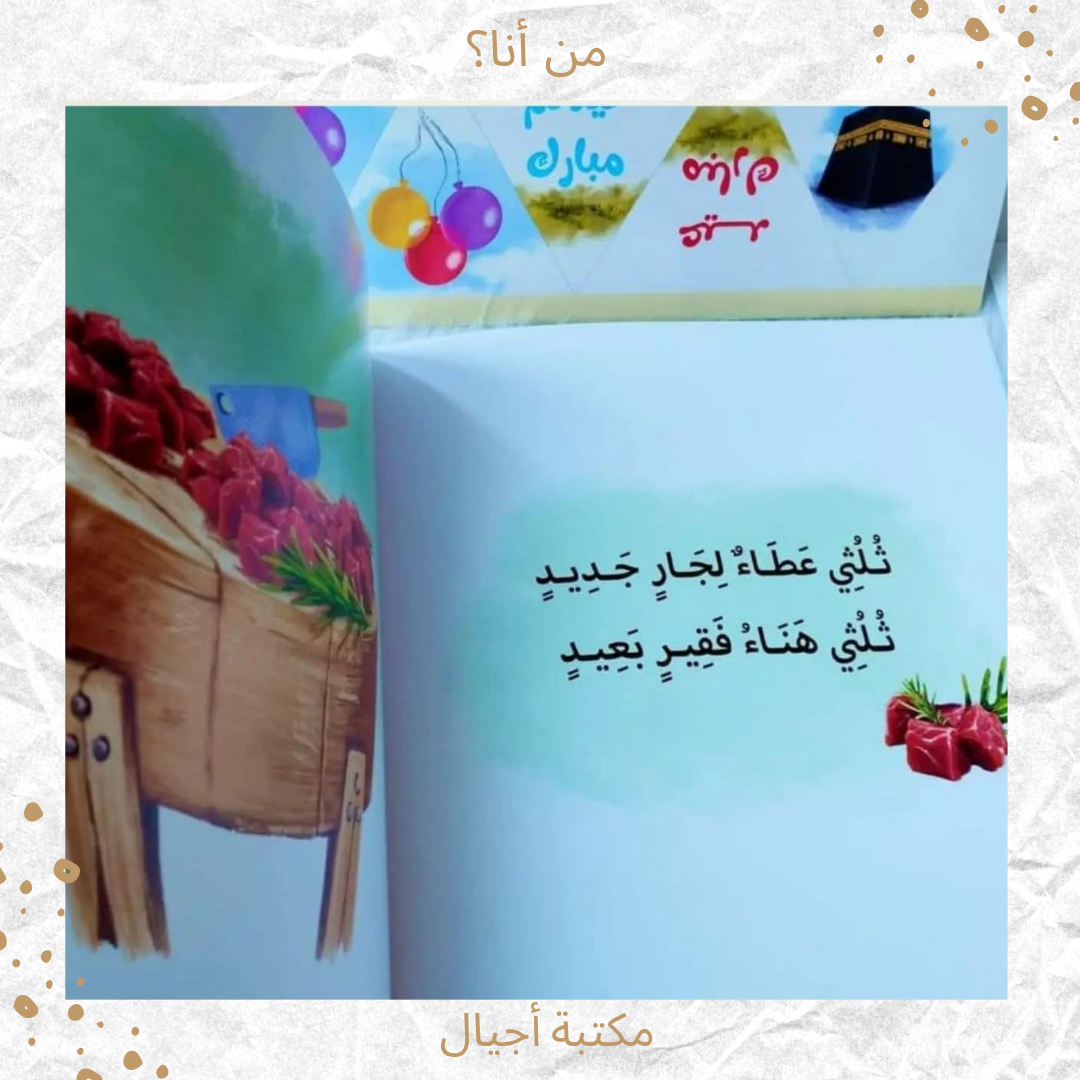 من أنا؟
مبارك
عيد
مبارك
ثُلُثِي عَطَاءٌ لِجَارٍ جَـدِيـدٍ
ثُلُثِي هَنَـاءُ فَقِيـرٍ بَعِيـدٍ
مكتبة أجيال